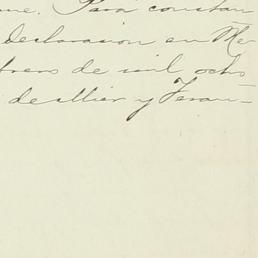 me. Para constan
declaracion en Me
brero de mil ocho
de Mier y Teran—